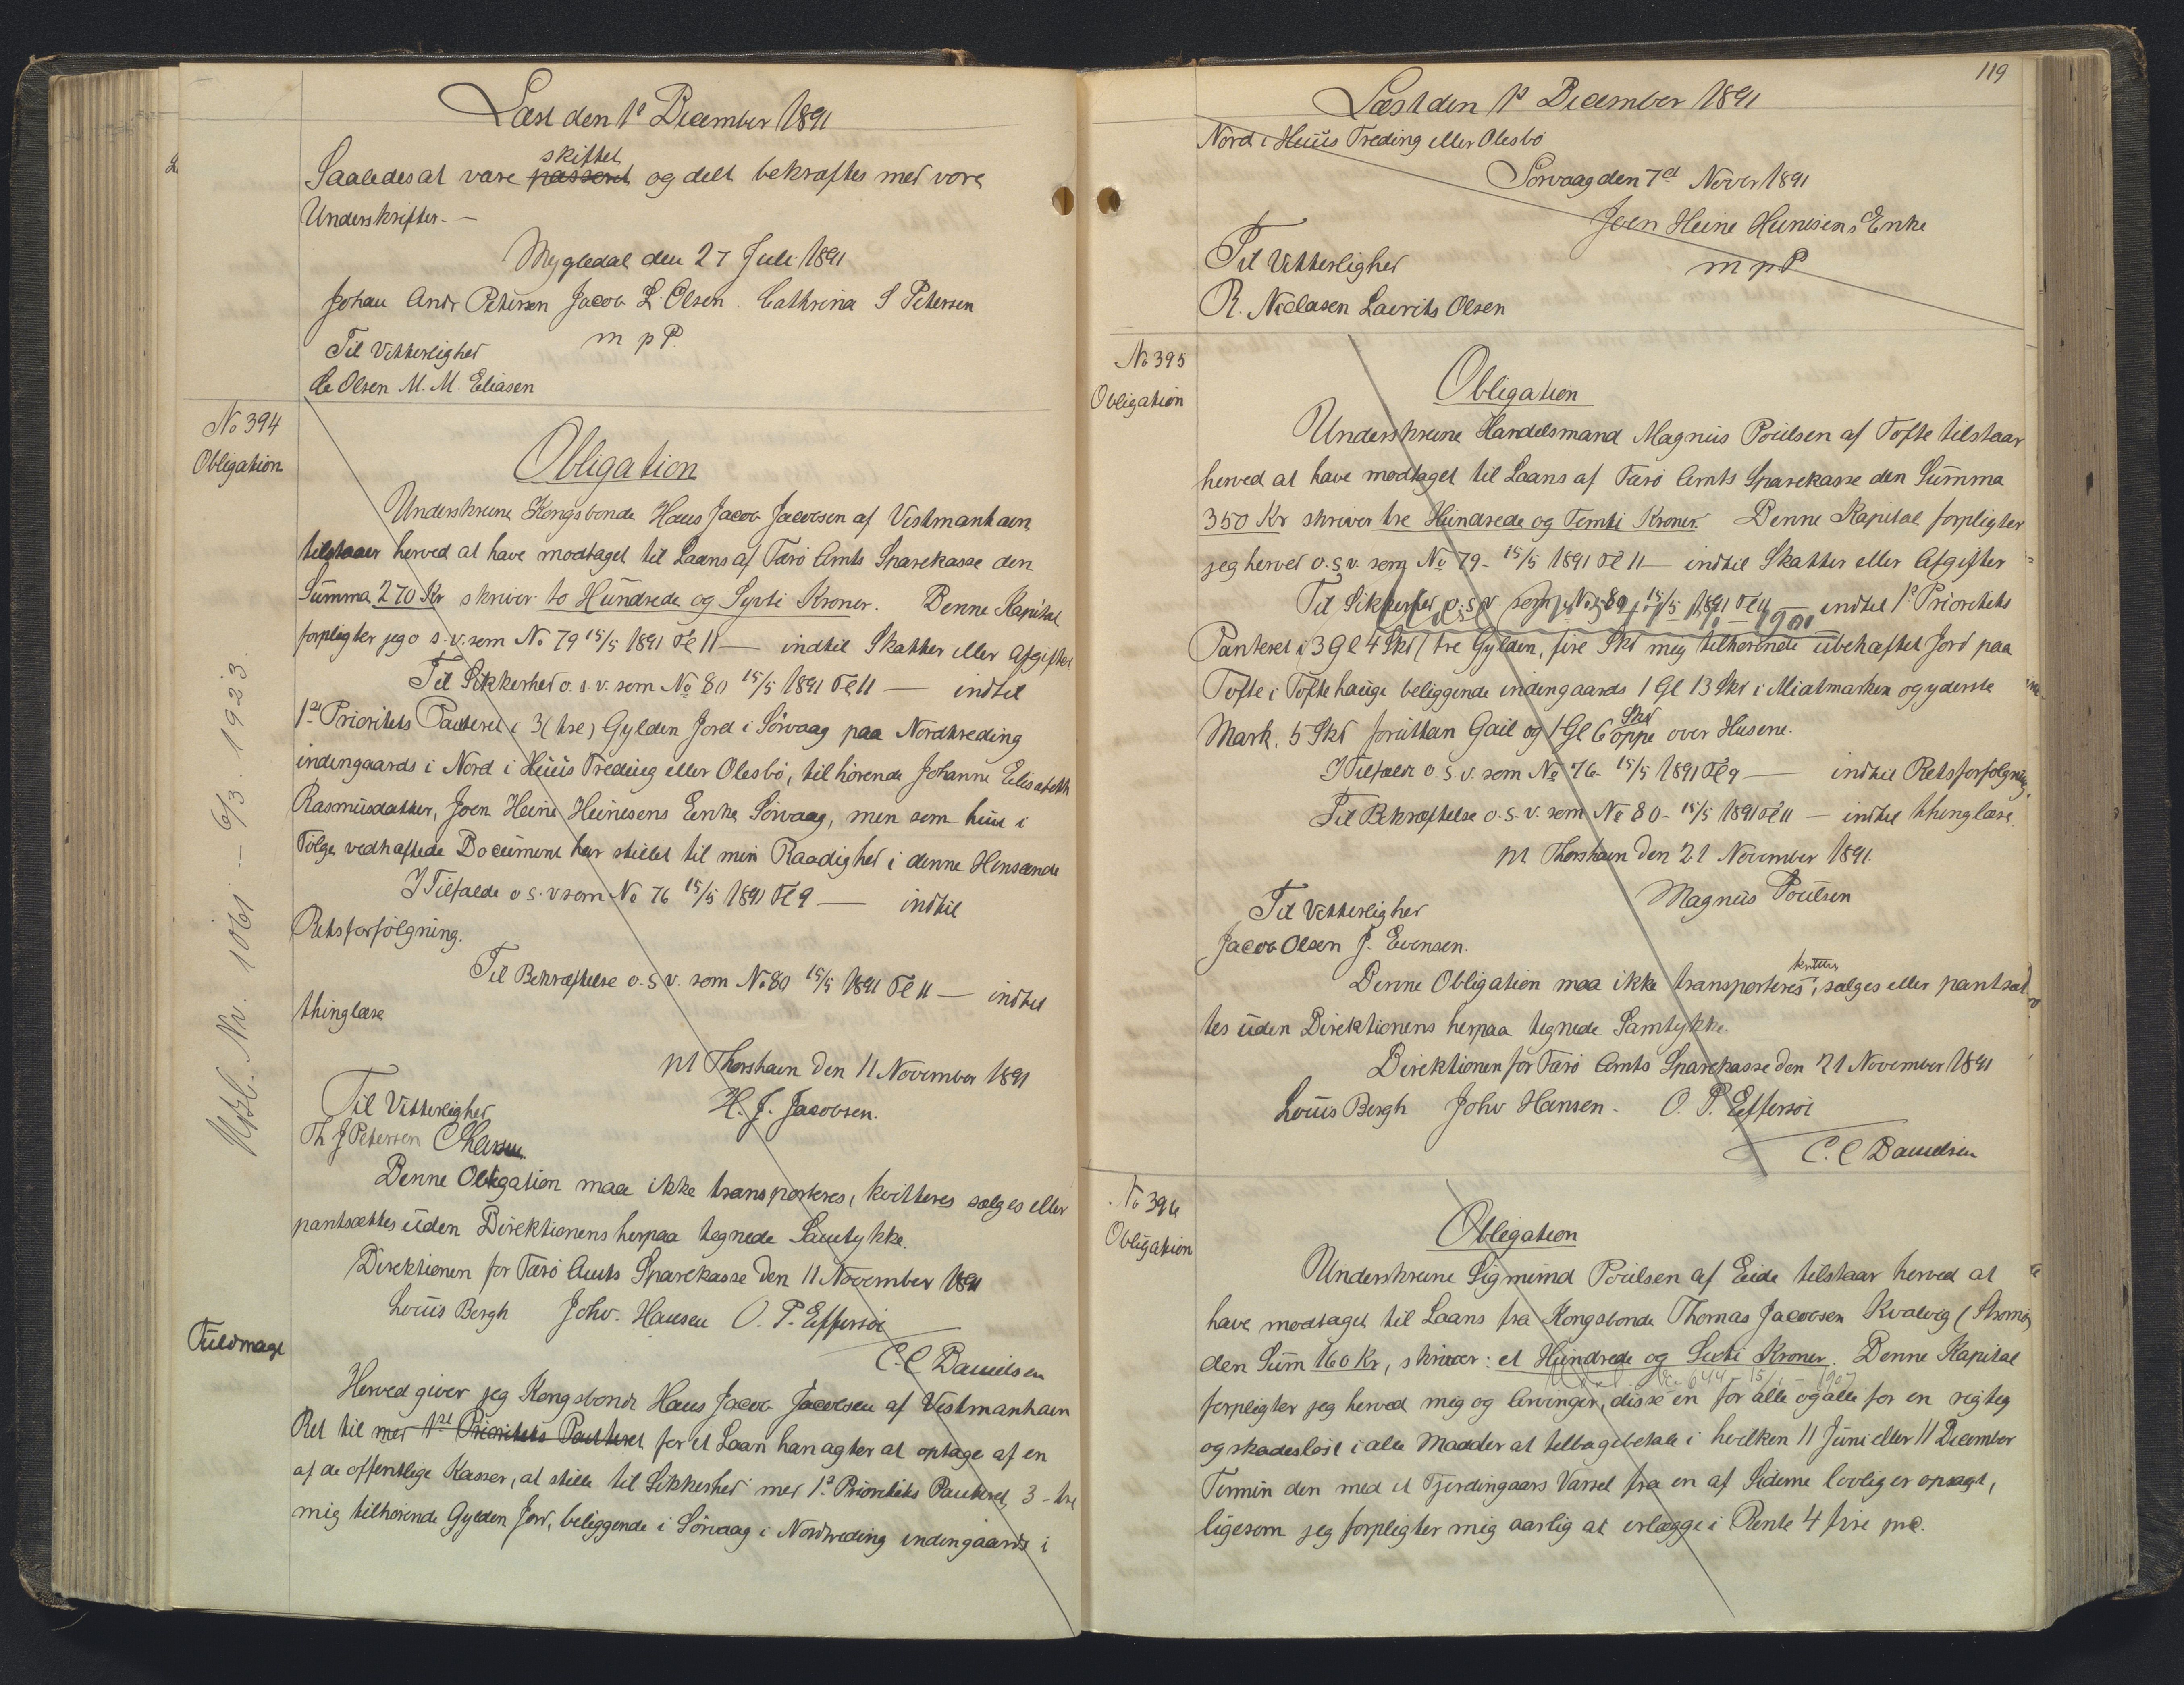 Læst den 1ᵉ December 1891
Saaledes at være passeret skiftet og delt bekræftes med vore
Underskrifter. —
Mygledal den 27 Juli 1891
Johan Andr Petersen Jacob L. Olsen. Cathrina S Petersen
m p P.
Til Vitterlighed
Ole Olsen M. M. Eliasen
No 394
Obligation
Obligation
Underskrevne Kongsbonde Hans Jacob Jacobsen af Vestmanhavn
tilstaaer herved at have modtaget til Laans af Færø Amts Sparekasse den
Summa 270 Kr skriver to Hundrede og Systi Kroner. Denne Kapital
forpligter jeg o s. v. som No 79 15/5 1891 Fl 11 — indtil Skatter eller Afgifter
Til Sikkerhed o. s. v. som No 80 15/5 1891 Fl 11 — indtil
1ste Prioritets Panteret i 3 (tre) Gylden Jord i Sörvaag paa Nordtreding
indengaards i Nord i Huus Treding eller Olesbö, tilhörende Johanne Elisabeth
Rasmusdatter, Joen Heine Heinesens Enke Sörvaag, men som hun i
Fölge vedhæftede Document har stillet til min Raadighed i denne Henseende
I Tilfælde o s. v som No 76 15/5 1891 Fl 9 — indtil
Retsforfölgning.
Til Bekræftelse o. s v. som No 80 15/5 1891 Fl 11 — indtil
thinglæse
pt Thorshavn den 11 November 1891
H. J. Jacobsen.
Til Vitterlighed
Th J Petersen
Denne Obligation maa ikke transporteres, kvitteres sælges eller
pantsættes uden Direktionens herpaa tegnede Samtykke.
Direktionen for Færö Amts Sparekasse den 11 November 1891
Louis Bergh Johs. Hansen O. P. Effersöe
C. C Danielsen
Fuldmagt
Herved giver jeg Kongsbonde Hans Jacob Jacobsen af Vestmanhavn
Ret til med 1ste Prioritets Panteret for et Laan han agter at optage af en
af de offentlige Kasser, at stille til Sikkerhed med 1ᵉ Prioritets Panteret 3 - tre
mig tilhörende Gylden Jord, beliggende i Sörvaag i Nordtreding indengaards i
Nr. 1061 - 6/3. 1923.
119
Læst den 1ᵉ December 1891
Nord i Huus Treding eller Olesbö
Sörvaag den 7de Novbr 1891
Joen Heine Heinesens Enke
m p P.
Til Vitterlighed
R. Niclasen Laurits Olsen
No 395
Obligation
Obligation
Underskrevne Handelsmand Magnus Poulsen af Tofte tilstaar
herved at have modtaget til Laans af Færö Amts Sparekasse den Summa
350 Kr skriver tre Hundrede og Femti Kroner. Denne Kapital forpligter
jeg herved o. s. v. som No 79 - 15/5 1891 Fl 11 — indtil Skatter eller Afgifter
Til Sikkerhed o. s. v. som No 80 15/5 1891 Fl 11 — indtil 1ᵉ Prioritets
Panteret i 3 Gl 4 Skd (tre Gylden, fire Skd mig tilhörende ubehæftet Jord paa
Tofte i Tofte hauge beliggende indengaards 1 Gl 13 Skd i Miatmarken og yderste
Mark. 5 Skd foruttan Gail og 1 Gl 6 Skd oppe over Husene.
I Tilfælde o. s. v. som No 76 - 15/5 1891 Fl 9 — indtil Retsforfölgning,
Til Bekræftelse o. s. v. som No 80 - 15/5 1891 Fl 11 — indtil thinglæse.
pt Thorshavn den 21 November 1891.
Magnus Poulsen
Til Vitterlighed
Jacob Olsen J. Evensen.
Denne Obligation maa ikke transporteres, kvitteres, sælges eller pantsæt
tes uden Direktionens herpaa tegnede Samtykke.
Direktionen for Færö Amts Sparekasse den 21 November 1891
Louis Bergh Johs Hansen. O. P. Effersöe
C. C Danielsen
No 396
Obligation
Obligation
Underskrevne Sigmund Poulsen af Eide tilstaar herved at
have modtaget til Laans fra Kongsbonde Thomas Jacobsen Kvalvig (Strömö)
den Sum 160 Kr, skriver: et Hundrede og Sexti Kroner. Denne Kapital
forpligter jeg herved mig og Arvinger, disse en for alle og alle for en rigtig
og skadeslöst i alle Maader at tilbagebetale i hvilken 11 Juni eller 11 December
Termin den med et Fjerdingaars Varsel fra en af Siderne lovlig er opsagt,
ligesom jeg forpligter mig aarlig at erlægge i Rente 4 fire pC.